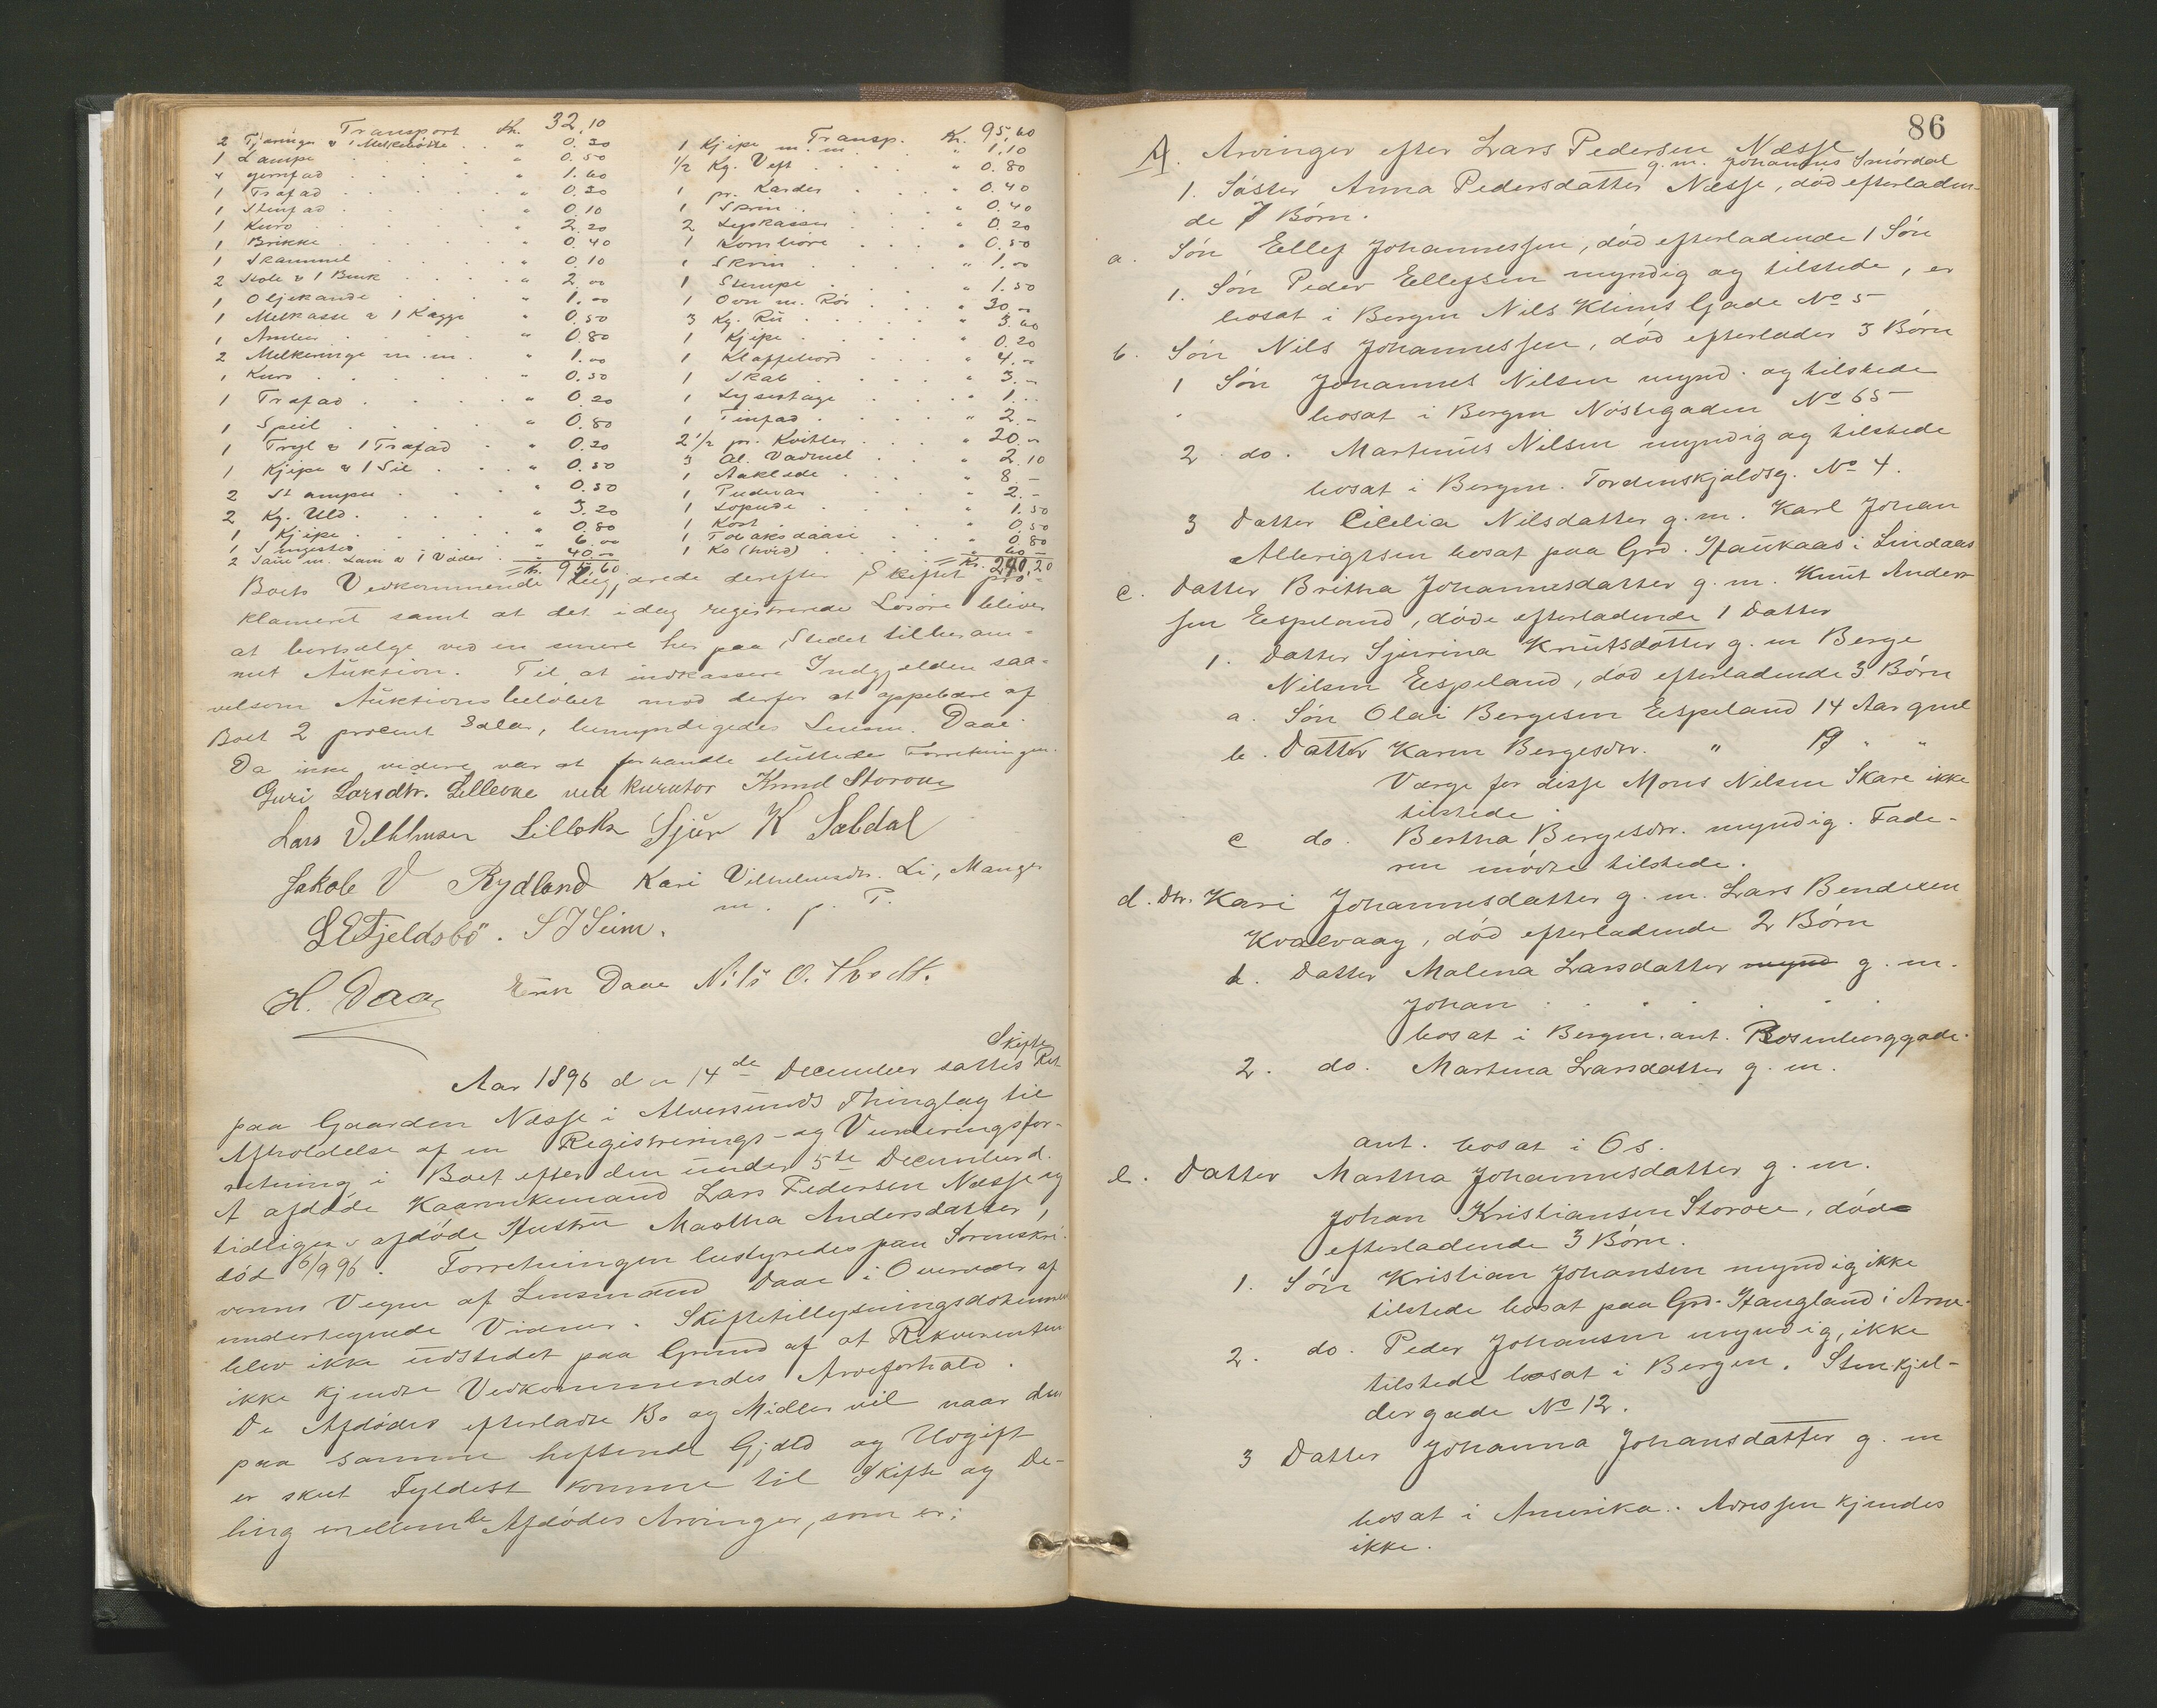 Transport Kr. 32.10
2 Tjæringer & 1 Melkebøtte " 0.20
1 Lampe " 0.50
4 Jernfad " 1.60
1 Træfad " 0.20
1 Stenfad " 0.10
1 Kurv " 2.20
1 Brikke " 0.40
1 Skammel " 0.10
2 Stole & 1 Bænk " 2.00
1 Oljekande " 1.00
1 Melkasse & 1 Kagge " 0.50
1 Ambar " 0.80
2 Melkeringe m.m. " 1.00
1 Kurv " 0.50
1 Træfad " 0.20
1 Speil " 0.80
1 Tryl & 1 Træfad " 0.20
1 Kjipe & 1 Sil " 0.50
2 Stamper " 0.50
2 Kg. Uld " 3.20
1 Kjipe " 0.80
1 Sengested " 6.00
2 Sau m. Lam & 1 Væder " 40.00
= Kr. 95.60
Transp. Kr. 95.60
1 Kjipe m.m. " 1.10
1/2 Kg. Veft " 0.80
1 pr. Karder " 0.40
1 Skrin " 0.40
2 Lyskasser " 0.20
1 Kornbøre " 0.50
1 Skrin " 1.00
1 Stempe " 1.50
1 Ovn m. Rør " 30.00
3 Kg. Ru " 3.60
1 Kjipe " 0.20
1 Klaffebord " 4.00
1 Skab " 3.-
1 Lysestage " 1.-
1 Tinfad " 2.-
2 1/2 pr. Kvitler " 20.-
3 Al. Vadmel " 2.10
1 Aaklæde " 8.-
1 Pudevar " 2.-
1 Sopude " 1.50
1 Kost " 0.50
1 Tobaksdaase " 0.80
1 Ko (hvid) " 60.-
= Kr. 240.20
Boets Vedkommende begjærede derefter Skiftet pro-
klameret samt at det idag registrerede Løsøre bliver
at bortsælge ved en senere her paa Stedet tilberam-
met Auktion. Til at indkassere Indgjælden saa-
velsom Auktionsbeløbet mod derfor at oppebære af
Boet 2 procent Salær, bemyndigedes Lensm. Daae.
Da ikke videre var at forhandle sluttedes Forretningen.
Guri Larsdtr. Lilleoxe ved kurator Knud Storoxe
Lars Vilhelmsen Lilloxe Sjur K Sæbdal
Jakob V Rydland Kari Vilhelmsdtr. Li, Manger
m. p. P.
S E Fjeldsbø. S J Seim.
H. Daae Erik Daae Nils O. Tvedt.
Aar 1896 den 14de December sattes Skifte Ret
paa Gaarden Næsse i Alversunds Thinglag til
Afholdelse af en Registrerings- og Vurderingsfor-
retning i Boet efter den under 5te December d.
A afdøde Kaarmkemand Lars Pedersen Næsse og
tidligere afdøde Hustru Martha Andersdatter,
død 6/9 96. Forretningen bestyredes paa Sorenskri-
verens Vegne af Lensmand Daae i Overvær af
undertegnede Vidner. Skiftetillysningsdokument
blev ikke udstedet paa Grund af at Rekvirenten
ikke kjendte Vedkommendes Arveforhold.
De Afdødes efterladte Bo og Midler vil naar den
paa samme heftende Gjæld og Udgift
er skeet Fyldest komme til Skifte og De-
ling mellem de Afdødes Arvinger, som er:
86
A. Arvinger efter Lars Pedersen Næsse
g.m. Johannes Smørdal
1. Søster Anna Pedersdatter Næsse, død efterladen-
de 7 Børn.
a. Søn Ellef Johannessen, død efterladende 1 Søn
1. Søn Peder Ellefsen myndig og tilstede, er
bosat i Bergen Nils Klims Gade No 5
b. Søn Nils Johannessen, død efterlader 3 Børn
1 Søn Johannes Nilsen mynd. og tilstede
bosat i Bergen Nøstegaden No 65
2 do. Martinus Nilsen myndig og tilstede
bosat i Bergen. Tordenskjoldsg. No 4.
3 Datter Cicelia Nilsdatter g.m. Karl Johan
Albrigtsen bosat paa Grd. Haukaas i Lindaas
c. Datter Britha Johannesdatter g.m. Knut Ander-
sen Espeland, døde efterladende 1 Datter
1. Datter Sjurina Knutsdatter g.m Berge
Nilsen Espeland, død efterladende 3 Børn
a. Søn Olai Bergesen Espeland 14 Aar gml
b. Datter Karen Bergesdtr. " 19 " "
Værge for disse Mons Nilsen Skare ikke
tilstede
c do. Bertha Bergesdtr. myndig. Fade-
ren mødte tilstede.
d. Dtr. Kari Johannesdatter g.m. Lars Bendixen
Kvalvaag, død efterladende 2 Børn
1. Datter Malena Larsdatter mynd g.m.
Johan
bosat i Bergen. ant. Rosenberggade.
2. do. Martina Larsdatter g.m.
ant. bosat i Os.
e. Datter Martha Johannesdatter g.m.
Johan Kristiansen Storoxe, død
efterladende 3 Børn.
1. Søn Kristian Johansen myndig ikke
tilstede bosat paa Grd. Haugland i Arne.
2. do. Peder Johansen myndig, ikke
tilstede bosat i Bergen. Stenkjel-
dergade No 12.
3 Datter Johanna Johansdatter g.m
bosat i Amerika. Adressen kjendes
ikke.